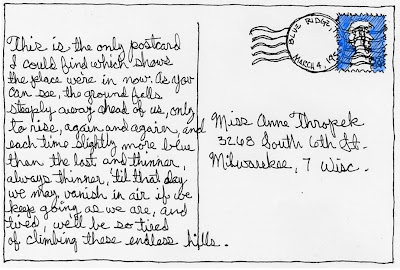 This is the only postcard
I could find which shows
the place we're in now. As you
can see, the ground falls
steeply away ahead of us, only
to rise, again and again, and
each time slightly more blue
than the last and thinner,
always thinner, 'til that day
we may vanish in air if we
keep going as we are, and
tired, we'll be so tired
of climbing these endless hills.
BLUE RIDGE
MARCH 4, 19
Miss Anna Thropek
3268 South 6th St.
Milwaukee, 7 Wisc.